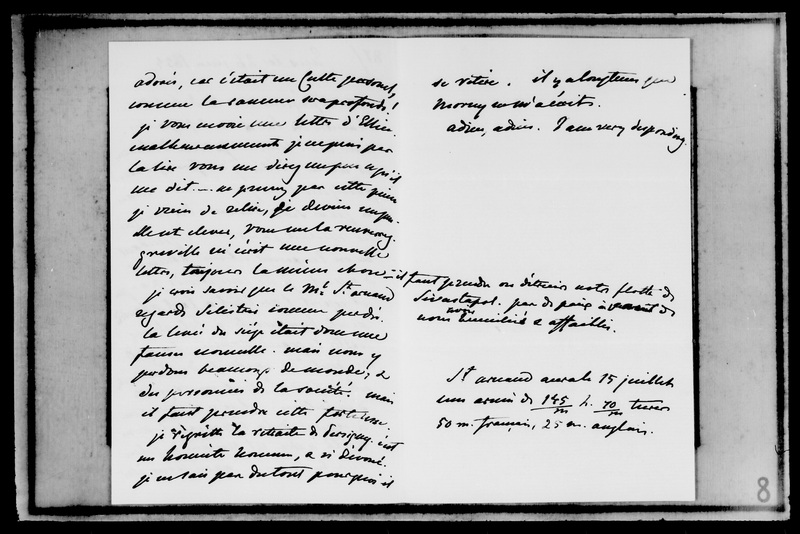 adorés, car c'était un culte personnel,
comme la rancune sera profonde !
je vous envoie une lettre d'Ellice.
malheureusement je ne puis pas
la lire vous me direz un peu ce qu'il
me dit. — ne prenez pas cette peine
je viens de relire, je devine
elle est vous me la renverrez.
greville m'écrit une nouvelle
lettre, toujours la même chose — il faut prendre ou détruire notre flotte de
Sévastopol. pas de paix avant de
nous avoir humilié & affaiblis.
je crois savoir que le Ml St arnaud
regarde Silistrie comme perdu.
la levée du siège était donc une
fausse nouvelle. mais nous y
perdons beaucoup de monde, &
des personnes de la société. mais
il faut prendre cette forteresse.
je regrette la retraite de Persigny. c'est
un honnête homme, & si dévoué.
je ne sais pas du tout pourquoi il
se retire. il y a longtems que
Morny ne m'a écrit.
adieu, adieu. I am very desponding.
St arnaud aura le 15 juillet
une armée de 145/m h. 70/m turcs
50 m. français, 25 m. anglais.
8